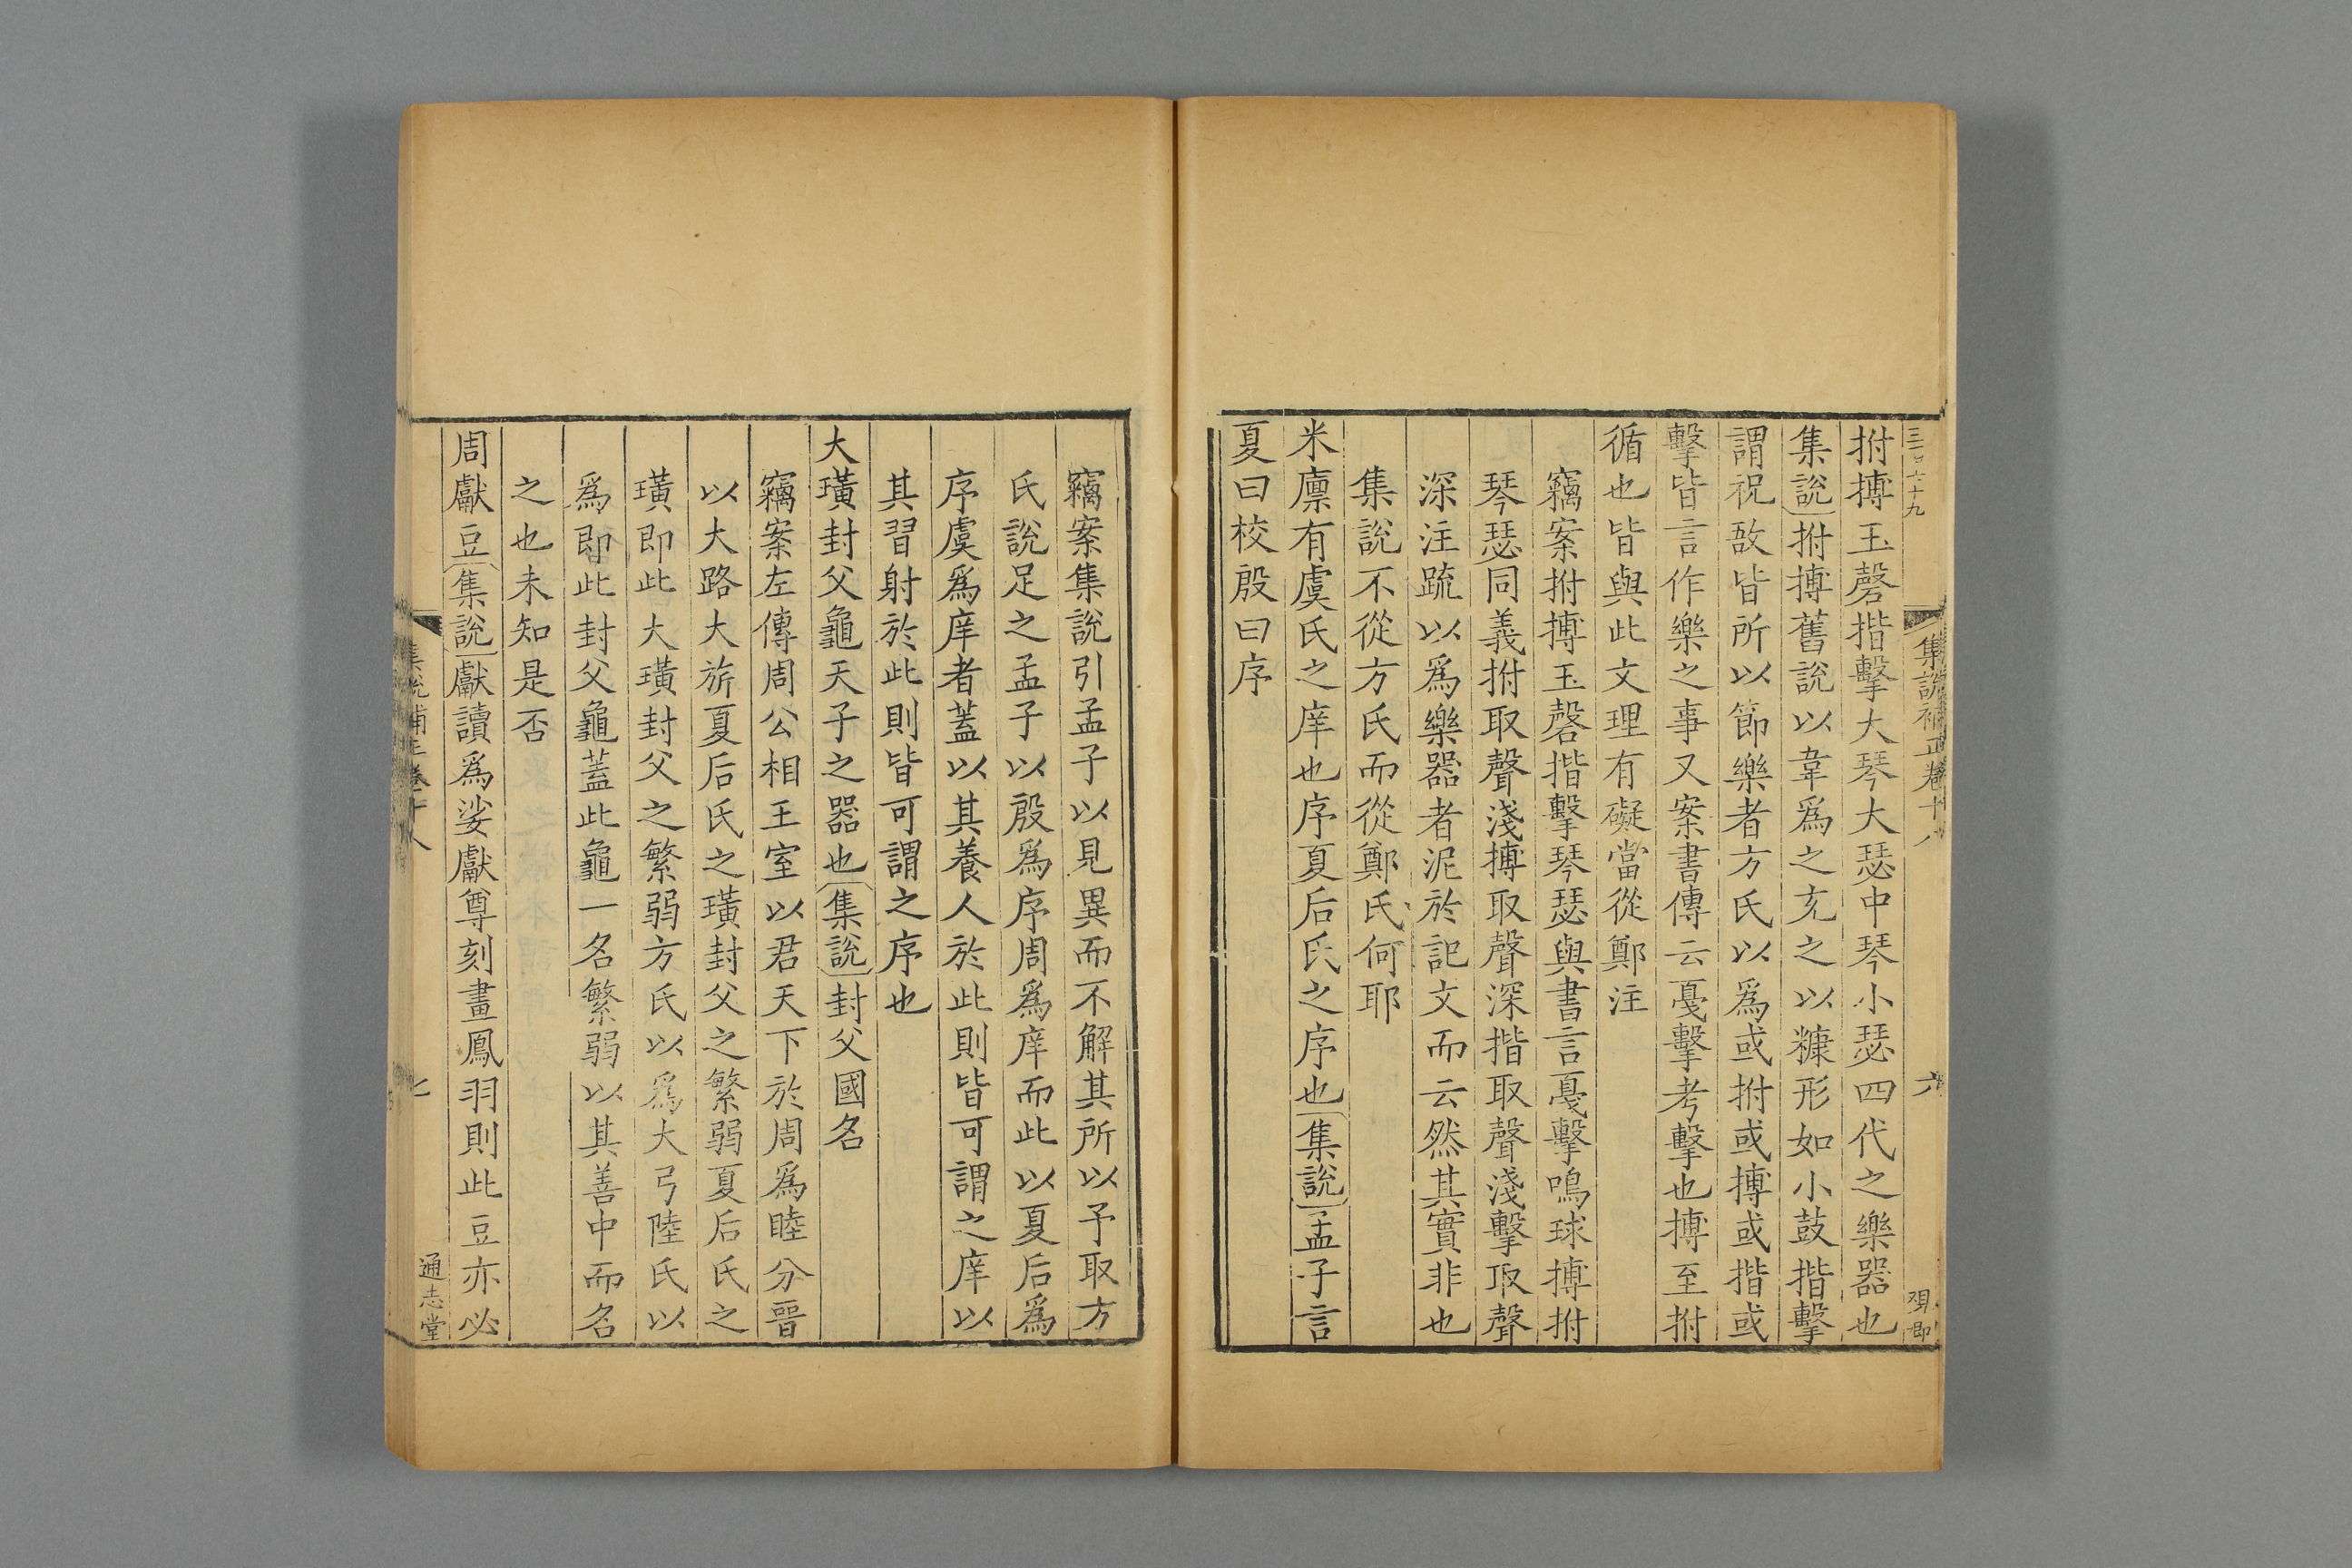 拊搏玉磬揩擊大琴大瑟中琴小瑟四代之樂器也
集說拊搏舊說以韋爲之充之以糠形如小鼓揩擊
謂柷敔皆所以節樂者方氏以爲或拊或搏或揩或
擊皆言作樂之事又案書傳云戞擊考擊也搏至拊
循也皆與此文理有礙當從鄭注
竊案拊搏玉磬揩擊琴瑟與書言戞擊鳴球搏拊
琴瑟同義拊取聲淺搏取聲深揩取聲淺擊取聲
深注疏以爲樂器者泥於記文而云然其實非也
集說不從方氏而從鄭氏何耶
米廩有虞氏之庠也序夏后氏之序也集說孟子言
夏曰校殷曰序
竊案集說引孟子以見異而不解其所以予取方
氏說足之孟子以殷爲序周爲庠而此以夏后爲
序虞爲庠者蓋以其養人於此則皆可謂之庠以
其習射於此則皆可謂之序也
大璜封父龜天子之器也集說封父國名
竊案左傳周公相王室以君天下於周爲睦分晉
以大路大旂夏后氏之璜封父之繁弱夏后氏之
璜即此大璜封父之繁弱方氏以爲大弓陸氏以
爲即此封父龜蓋此龜一名繁弱以其善中而名
之也未知是否
周獻豆集說獻讀爲娑獻尊刻畫鳳羽則此豆亦必
集說補正卷十八
六
七
通志堂